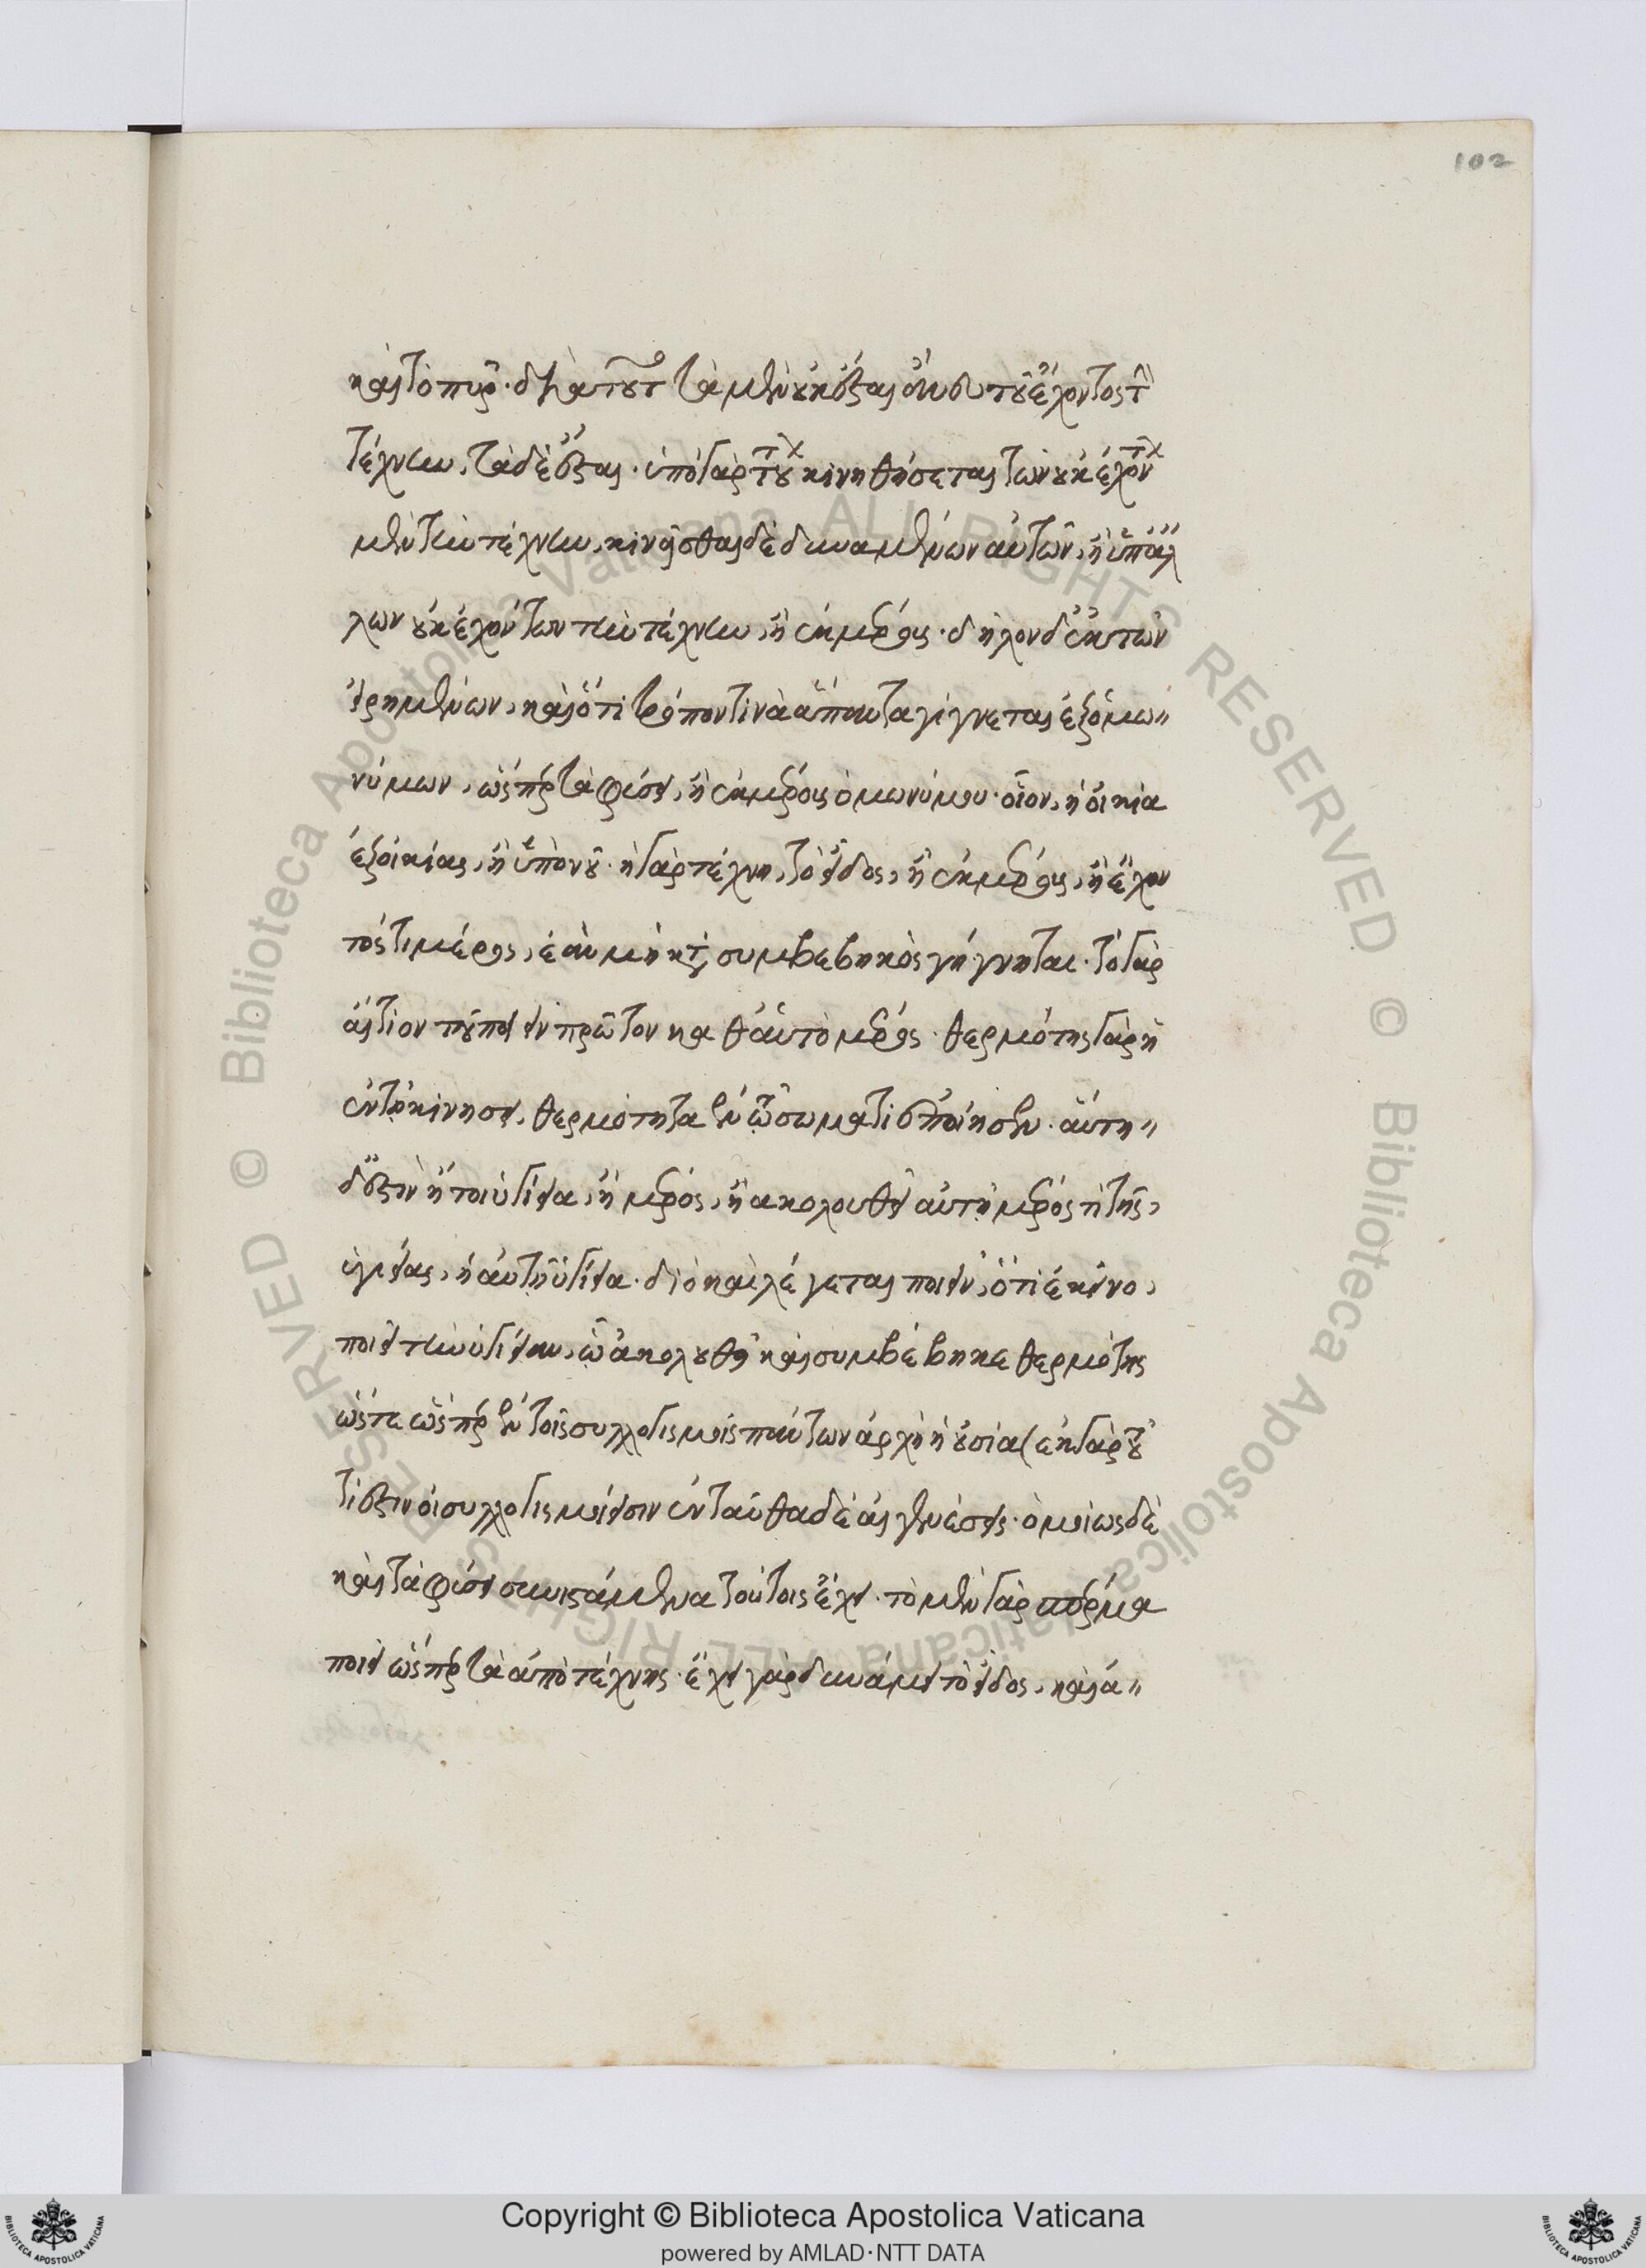 102
καὶ τὸ πῦρ· διὰ τοῦτο τὰ μὲν οὐκ ἔσται ἄνευ τοῦ ἔχοντος τὴν
τέχνην, τὰ δὲ ἔσται· ὑπὸ γὰρ τούτων κινηθήσεται τῶν οὐκ ἐχόντων
μὲν τὴν τέχνην, κινεῖσθαι δὲ δυναμένων αὐτῶν, ἢ ὑπ' ἄλ
λων οὐκ ἐχόντων τὴν τέχνην, ἢ ἐκ μέρους· δῆλον δ' ἐκ τῶν
εἰρημένων, καὶ ὅτι τρόπον τινὰ ἅπαντα γίγνεται ἐξ ὁμω"
νύμων, ὥσπερ τὰ φύσει, ἢ ἐκ μέρους ὁμωνύμου· οἷον, ἡ οἰκία
ἐξ οἰκίας, ἢ ὑπὸ νοῦ· ἡ γὰρ τέχνη, τὸ εἶδος, ἢ ἐκ μέρους, ἢ ἔχον
τός τι μέρος, ἐὰν μὴ κατὰ συμβεβηκὸς γίγνηται· τὸ γὰρ
αἴτιον τοῦ ποιεῖν πρῶτον καθ' αὑτὸ μέρος· θερμότης γὰρ ἡ
ἐν τῇ κινήσει, θερμότητα ἐν τῷ σώματι ἐποίησεν· αὕτη"
δ' ἐστὶν ἤτοι ὑγίεια, ἢ μέρος, ἢ ἀκολουθεῖ αὐτῇ μέρος τι τῆς,
ὑγιείας, ἢ αὐτὴ ὑγίεια· διὸ καὶ λέγεται ποιεῖν, ὅτι ἐκεῖνο,
ποιεῖ τὴν ὑγίειαν, ᾧ ἀκολουθεῖ καὶ συμβέβηκε θερμότης
ὥστε ὥσπερ ἐν τοῖς συλλογισμοῖς πάντων ἀρχὴ ἡ οὐσία (ἐκ γὰρ τοῦ
τί ἐστιν οἱ συλλογισμοί εἰσιν ἐνταῦθα δὲ αἱ γενέσεις· ὁμοίως δὲ
καὶ τὰ φύσει συνιστάμενα τούτοις ἔχει· τὸ μὲν γὰρ σπέρμα
ποιεῖ ὥσπερ τὰ ἀπὸ τέχνης· ἔχει γὰρ δυνάμει τὸ εἶδος, καὶ ἀ"
Copyright © Biblioteca Apostolica Vaticana
powered by AMLAD·NTT DATA